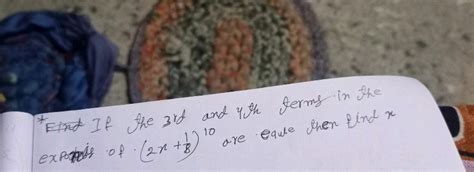 * If the 3rd and 4th terms in the
expands of (2x + 1/8)^10 are eque then find x